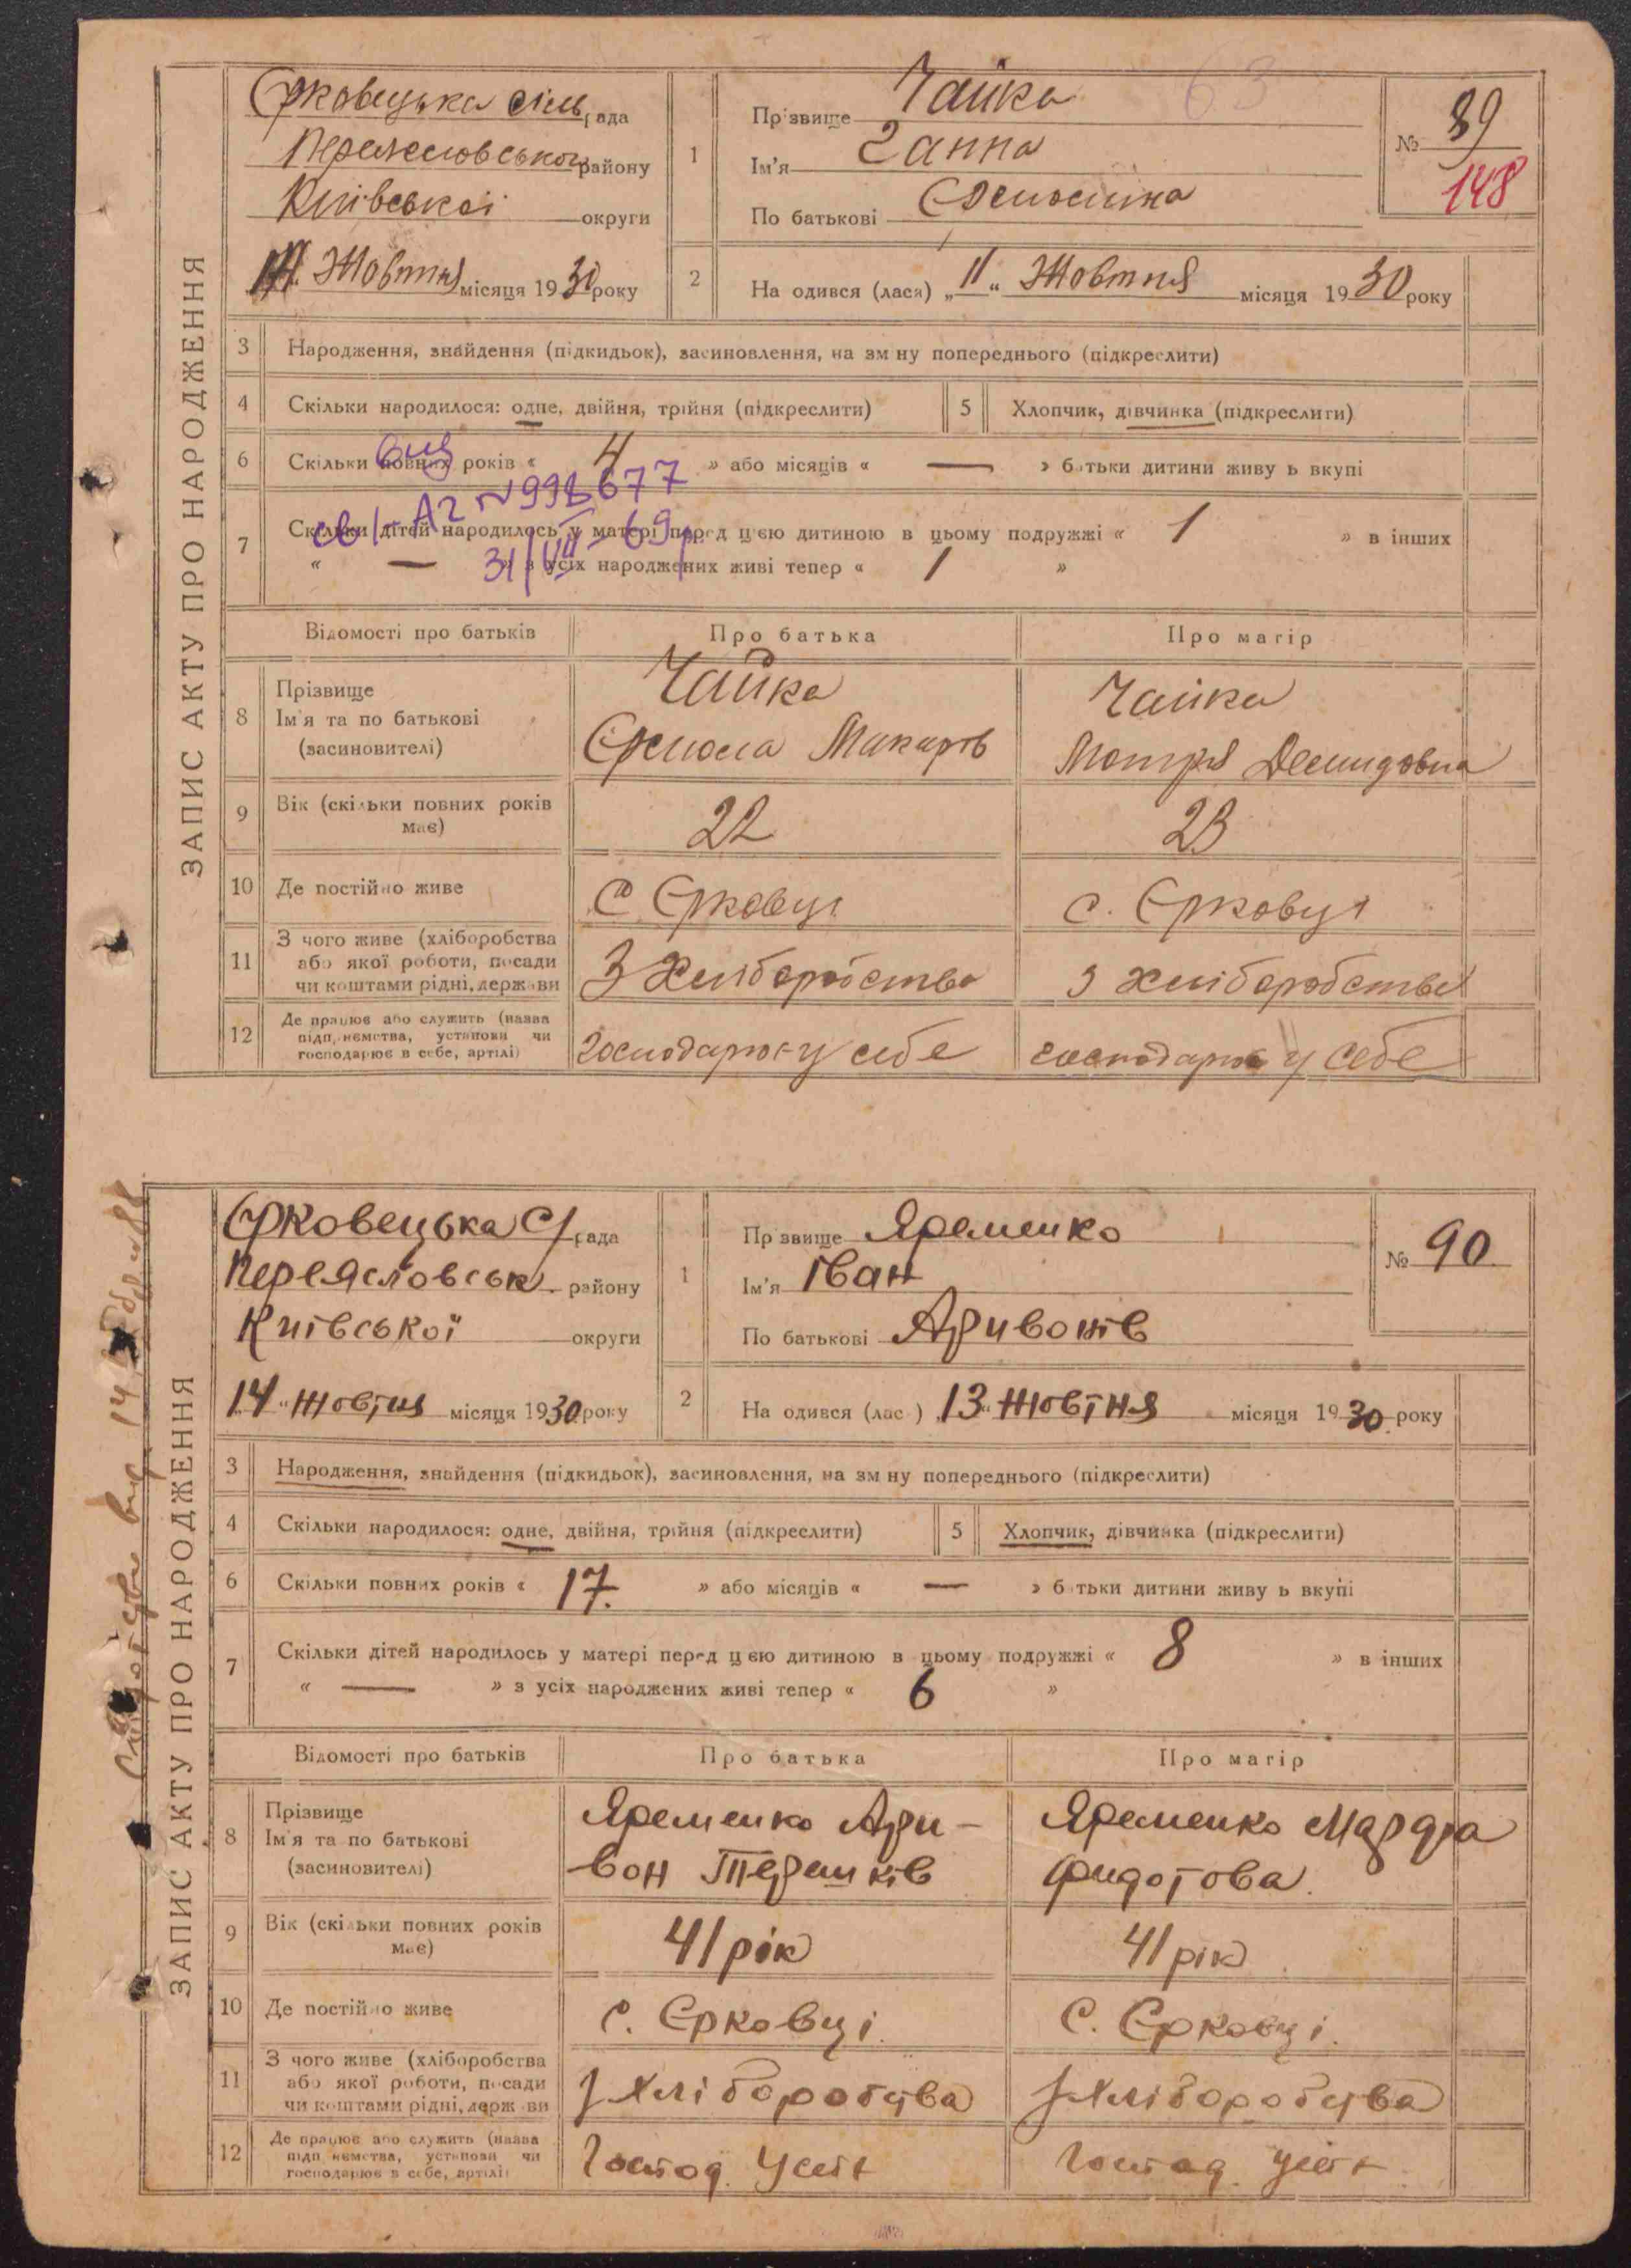 ЗАПИС АКТУ ПРО НАРОДЖЕННЯ
Єрковецька сіль рада
Переяславського району
Київської округи
Жовтня місяця 1930 року
63
1
Прізвище Чайка
Ім'я Ганна
По батькові
№ 89
148
2
На одився (лася) „11“ Жовтня місяця 1930 року
3 Народження, знайдення (підкидьок), засиновлення, на зм ну попереднього (підкреслити)
4 Скільки народилося: одне, двійня, трійня (підкреслити)
5 Хлопчик, дівчинка (підкреслити)
6 Скільки повних років « 4 » або місяців « — » б тьки дитини живу ь вкупі
АГ N 998677
7 Скільки дітей народилось у матері перед цією дитиною в цьому подружжі « 1 » в інших
« — » з усіх народжених живі тепер « 1 »
31/VII-69р.
Відомості про батьків Про батька Про матір
8 Прізвище Чайка Чайка
Ім'я та по батькові
(засиновителі) Макарів Мотря Демидовна
9 Вік (скільки повних років
має) 22 23
10 Де постійно живе с. Єрковці с. Єрковці
11 З чого живе (хліборобства
або якої роботи, посади
чи коштами рідні, держави З Хліборобства з хліборобства
12 Де працює або служить (назва
підприємства, установи чи
господарює в себе, артілі) господарює у себе господарює у себе
ЗАПИС АКТУ ПРО НАРОДЖЕННЯ
Єрковецька С/рада
Переясловськ. району
Київської округи
„14“ Жовтня місяця 1930 року
1
Пр звище Яременко
Ім'я Іван
По батькові Аривонів
№ 90.
2
На одився (лас ) „13“ Жовтня місяця 1930. року
3 Народження, знайдення (підкидьок), засиновлення, на зм ну попереднього (підкреслити)
4 Скільки народилося: одне, двійня, трійня (підкреслити)
5 Хлопчик, дівчинка (підкреслити)
6 Скільки повних років « 17. » або місяців « — » б тьки дитини живу ь вкупі
7 Скільки дітей народилось у матері перед цією дитиною в цьому подружжі « 8 » в інших
« — » з усіх народжених живі тепер « 6 »
Відомості про батьків Про батька Про матір
8 Прізвище Яременко Ари- Яременко Марфа
Ім'я та по батькові вон Терешків Фидотова.
(засиновителі)
9 Вік (скільки повних років
має) 41 рік 41 рік
10 Де постійно живе с. Єрковці. с. Єрковці.
11 З чого живе (хліборобства
або якої роботи, посади
чи коштами рідні, держави З Хліборобства З Хліборобства
12 Де працює або служить (назва
підприємства, установи чи
господарює в себе, артілі) Господ. Господ.